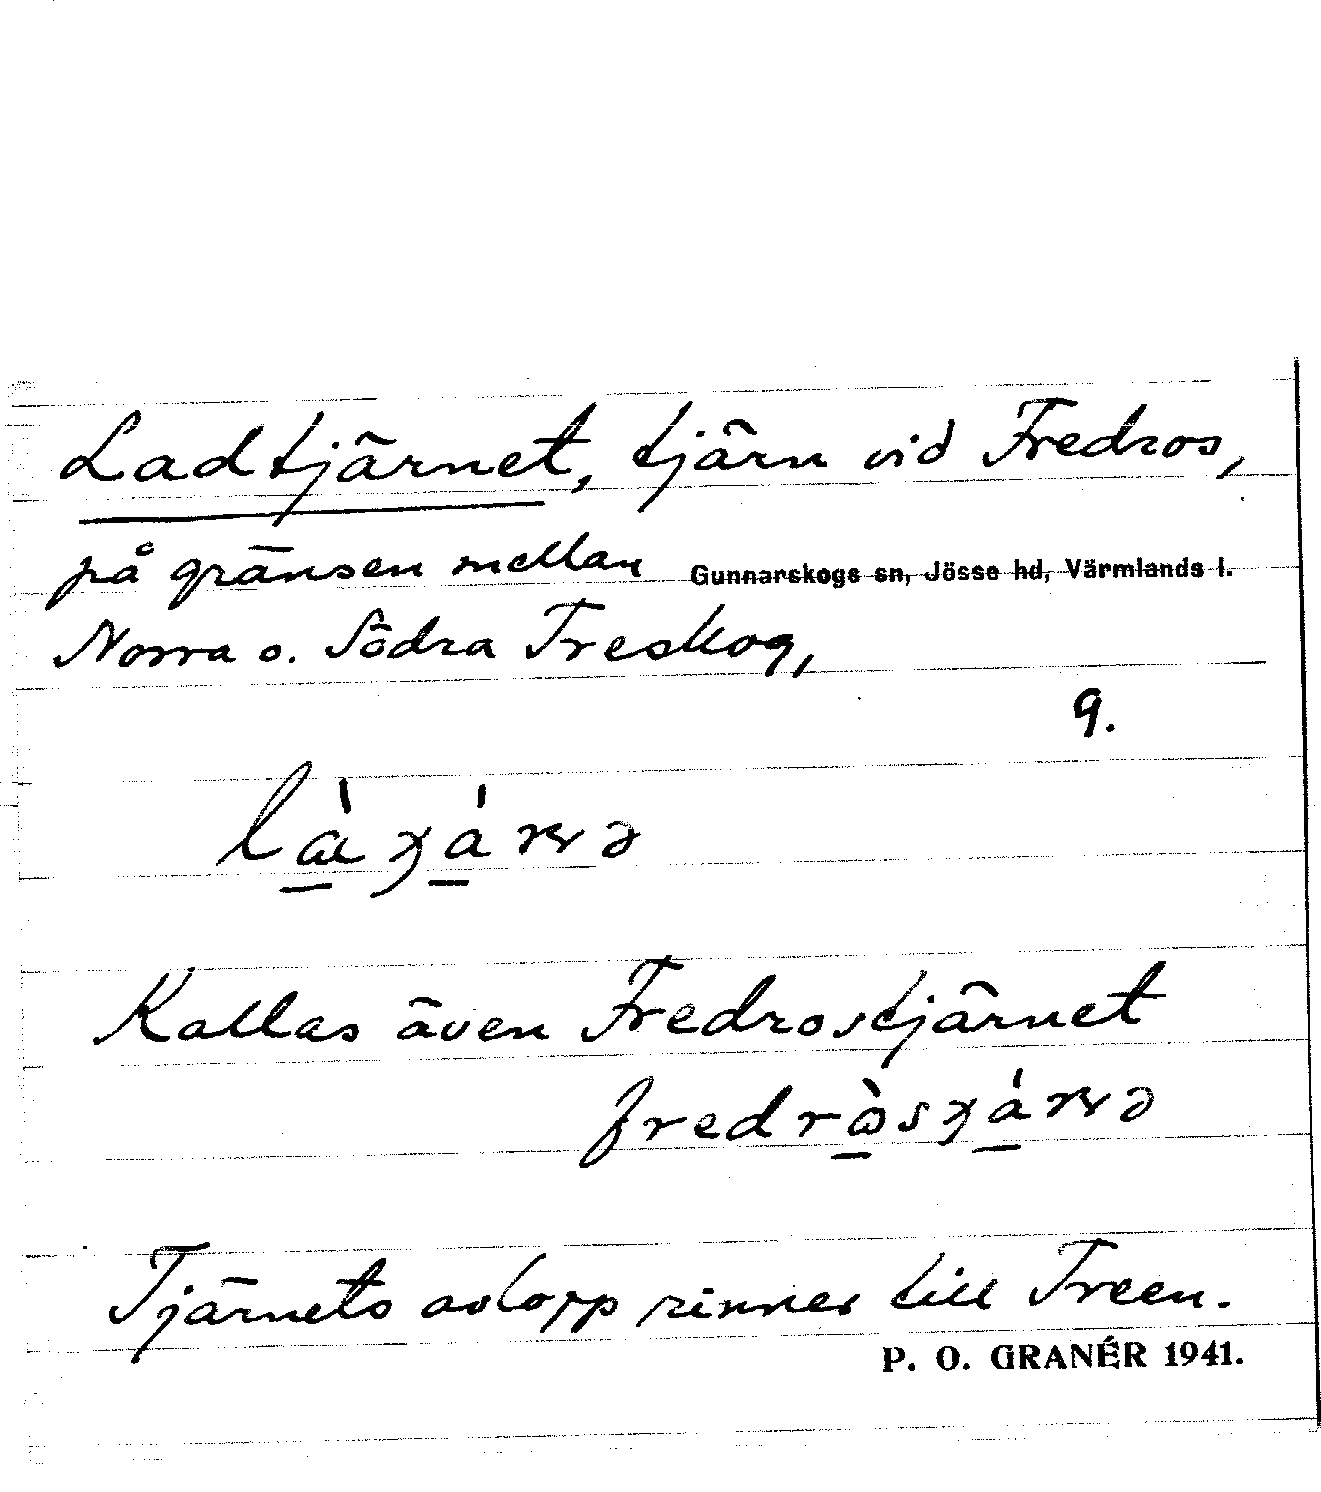 Ladtjärnet, tjärn vid Fredros,
på gränsen mellan Gunnarskogs sn, Jösse hd, Värmlands l.
Norra o. Södra Treskog,
9.
Kallas även Fredrostjärnet
Tjärnets avlopp rinner till Treen.
P. O. GRANÉR 1941.